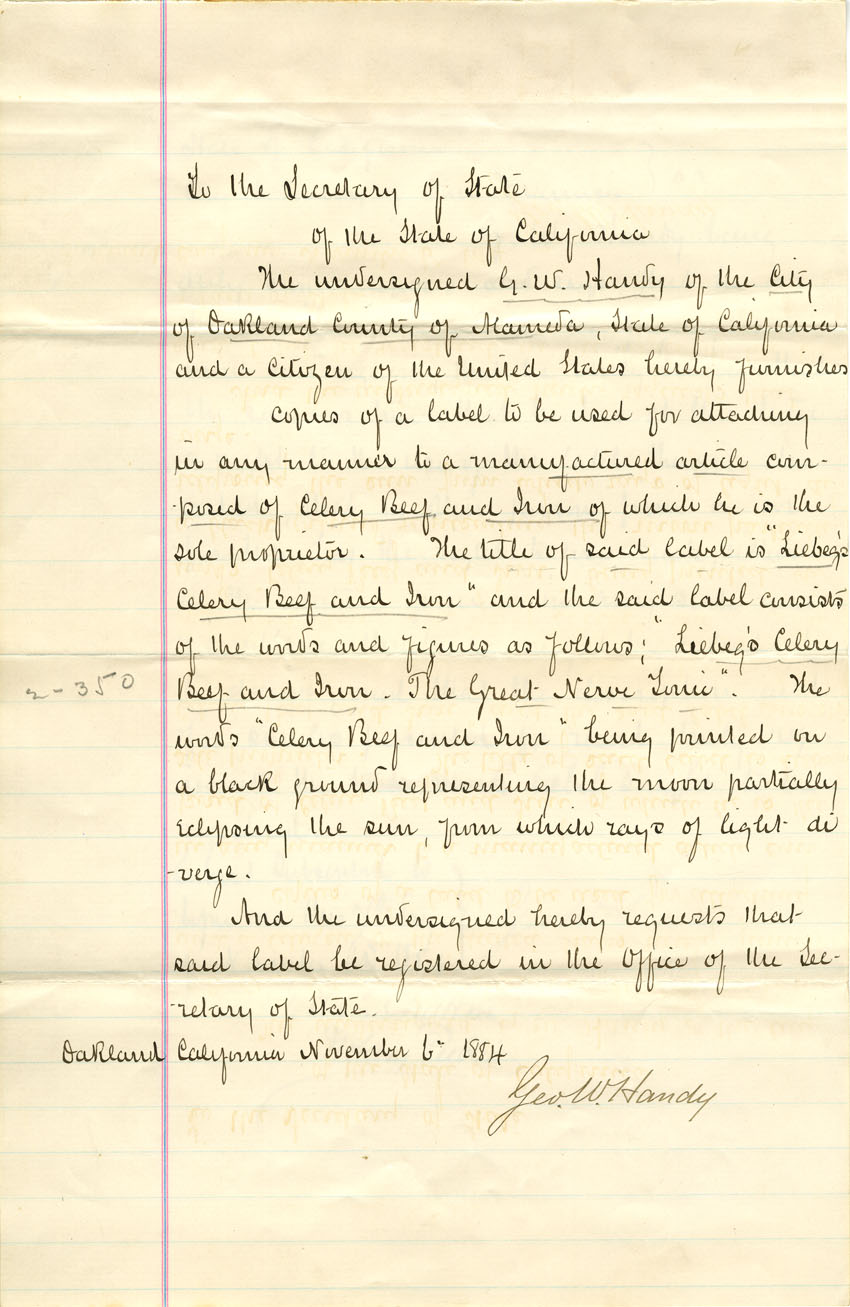 To the Secretary of State
of the State of California
The undersigned G. W. Handy of the City
of Oakland County of Alameda, State of California
and a Citizen of the United States hereby furnishes
copies of a label to be used for attaching
in any manner to a manufactured article com-
-posed of Celery Beef and Iron of which he is the
sole proprietor. The title of said label is "Liebeg's
Celery Beef and Iron" and the said label consists
of the words and figures as follows; "Liebeg's Celery
2-350 Beef and Iron. The Great Nerve Tonic". The
words "Celery Beef and Iron" being printed on
a black ground representing the moon partially
eclipsing the sun, from which rays of light di
-verge.
And the undersigned hereby requests that
said label be registered in the Office of the Sec-
-retary of State.
Oakland California November 6" 1884
Geo. W. Handy